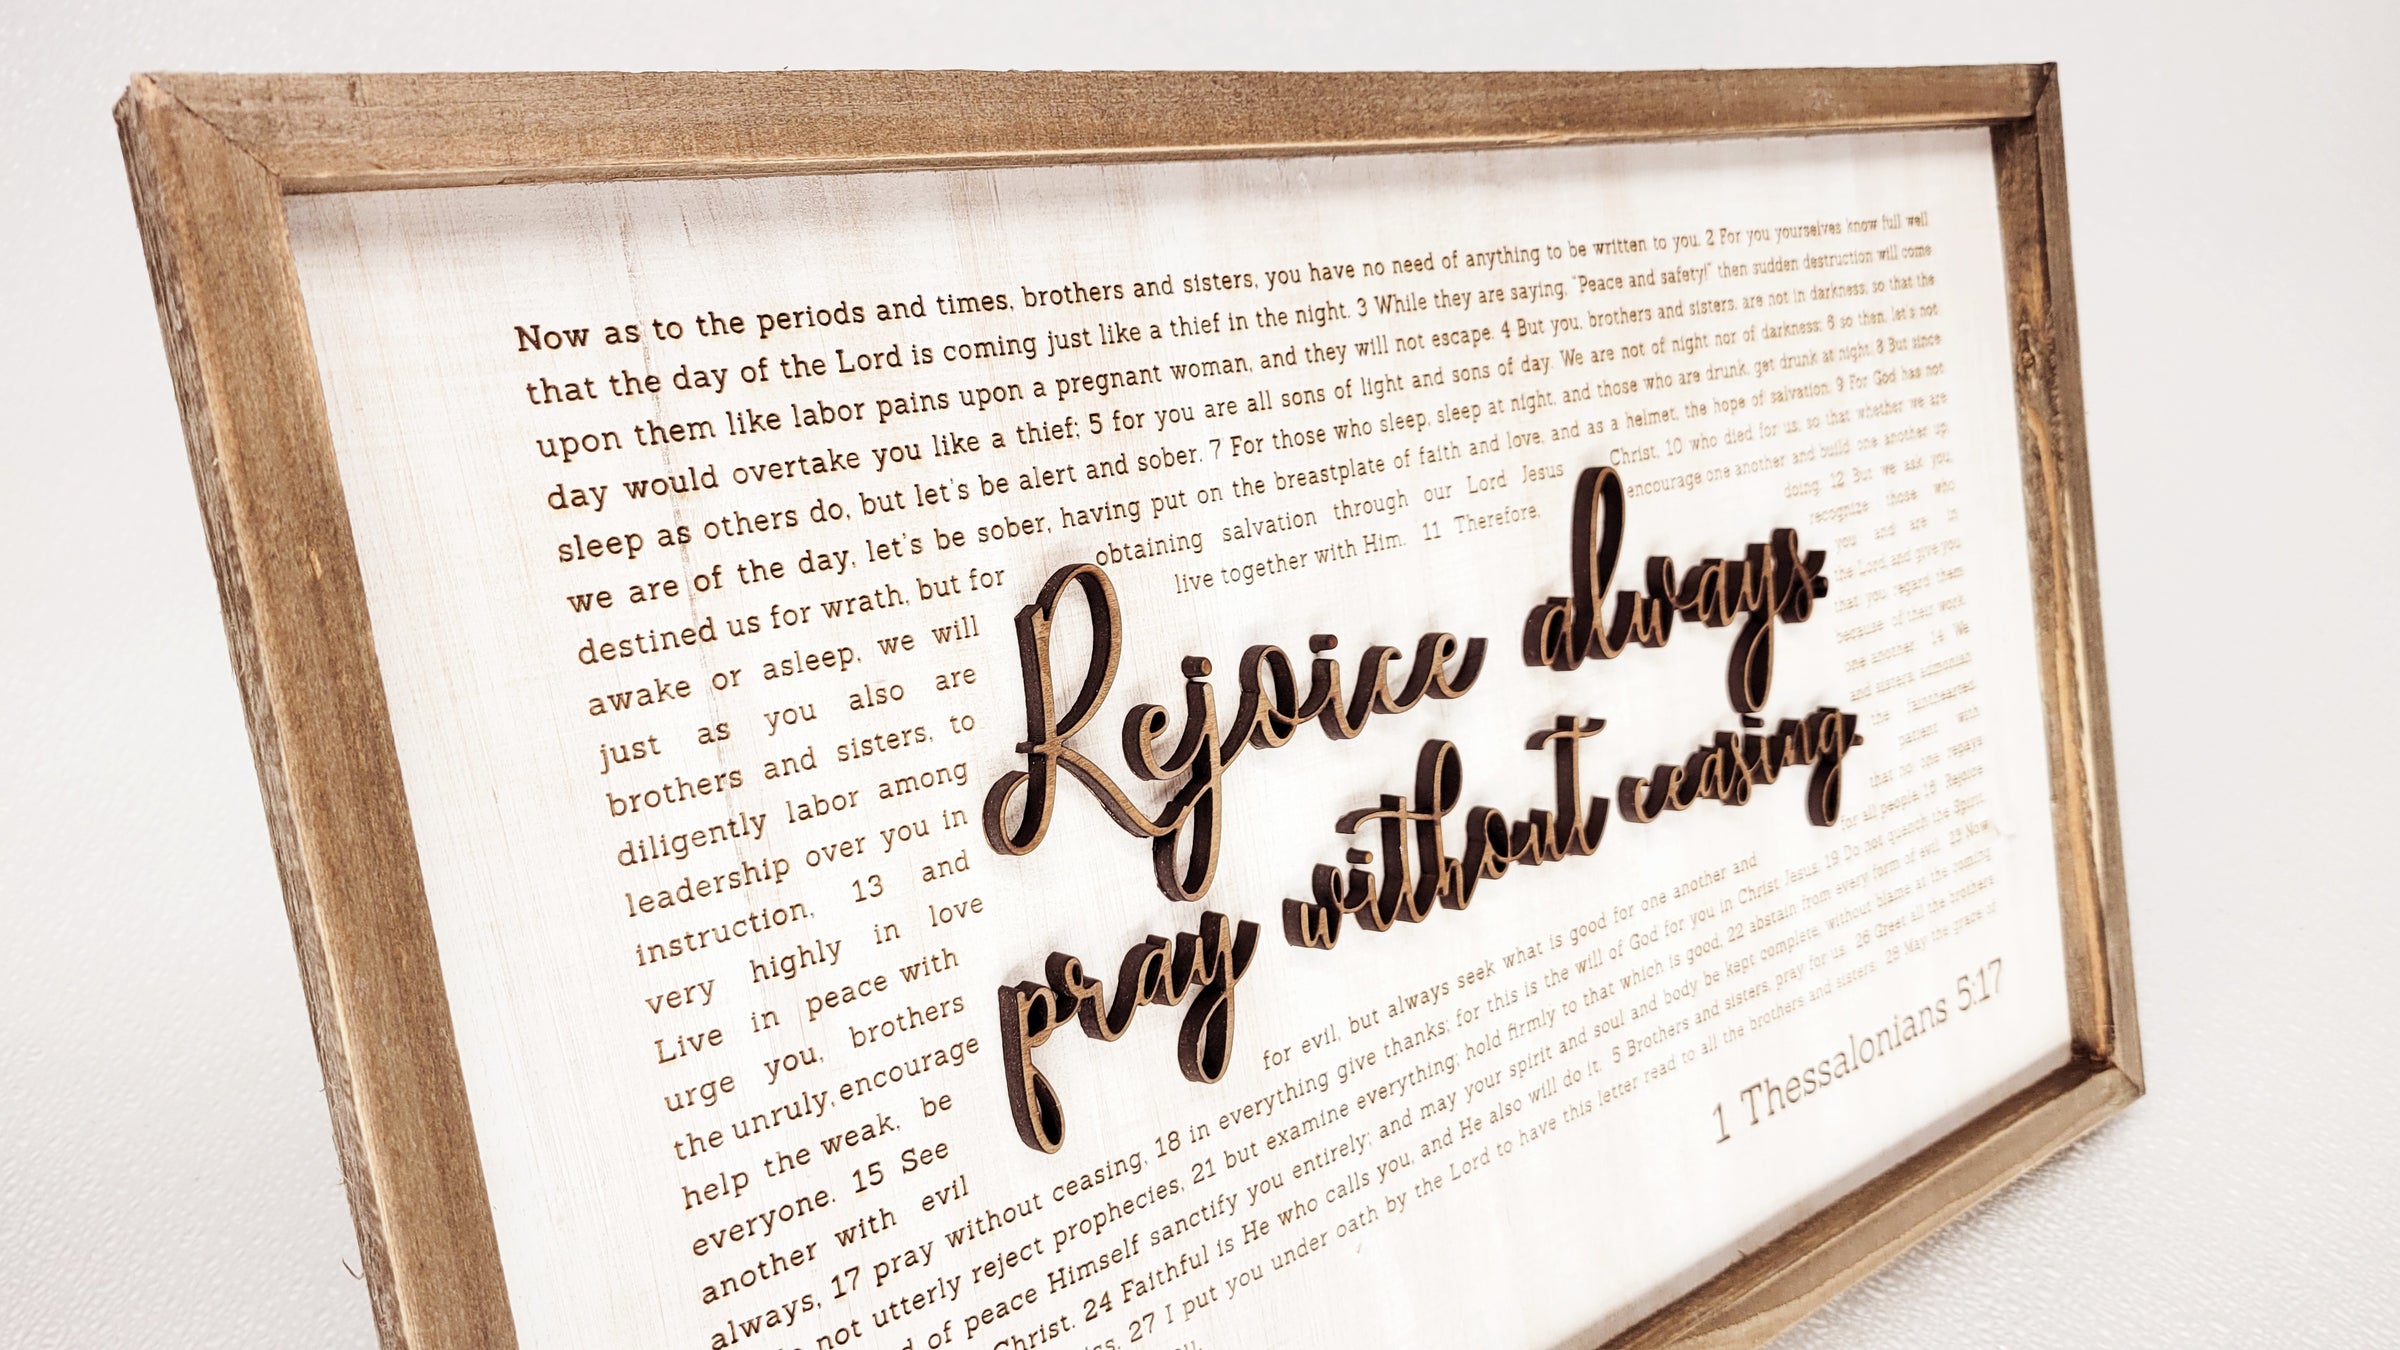 Now as to the periods and times, brothers and sisters, you have no need of anything to be written to you. 2 For you yourselves know full well
that the day of the Lord is coming just like a thief in the night. 3 While they are saying, "Peace and safety!" then sudden destruction will come
upon them like labor pains upon a pregnant woman, and they will not escape. 4 But you, brothers and sisters, are not in darkness, so that the
day would overtake you like a thief; 5 for you are all sons of light and sons of day. We are not of night nor of darkness; 6 so then, let's not
sleep as others do, but let's be alert and sober. 7 For those who sleep, sleep at night, and those who are drunk, get drunk at night. 8 But since
we are of the day, let's be sober, having put on the breastplate of faith and love, and as a helmet, the hope of salvation. 9 For God has not
destined us for wrath, but for obtaining salvation through our Lord Jesus Christ, 10 who died for us, so that whether we are
awake or asleep, we will live together with Him. 11 Therefore, encourage one another and build one another up,
just as you also are doing. 12 But we ask you,
brothers and sisters, to recognize those who
diligently labor among you and are in
leadership over you in the Lord and give you
instruction, 13 and that you regard them
very highly in love because of their work.
Live in peace with one another. 14 We
urge you, brothers and sisters, admonish
the unruly, encourage the fainthearted,
help the weak, be patient with
everyone. 15 See that no one repays
another with evil for evil, but always seek what is good for one another and for all people. 16 Rejoice
always, 17 pray without ceasing, 18 in everything give thanks; for this is the will of God for you in Christ Jesus. 19 Do not quench the Spirit,
not utterly reject prophecies, 21 but examine everything; hold firmly to that which is good, 22 abstain from every form of evil. 23 Now
of peace Himself sanctify you entirely; and may your spirit and soul and body be kept complete, without blame at the coming
Christ. 24 Faithful is He who calls you, and He also will do it. 5 Brothers and sisters, pray for us. 26 Greet all the brothers
27 I put you under oath by the Lord to have this letter read to all the brothers and sisters. 28 May the grace of
Rejoice always.
pray without ceasing.
1 Thessalonians 5:17